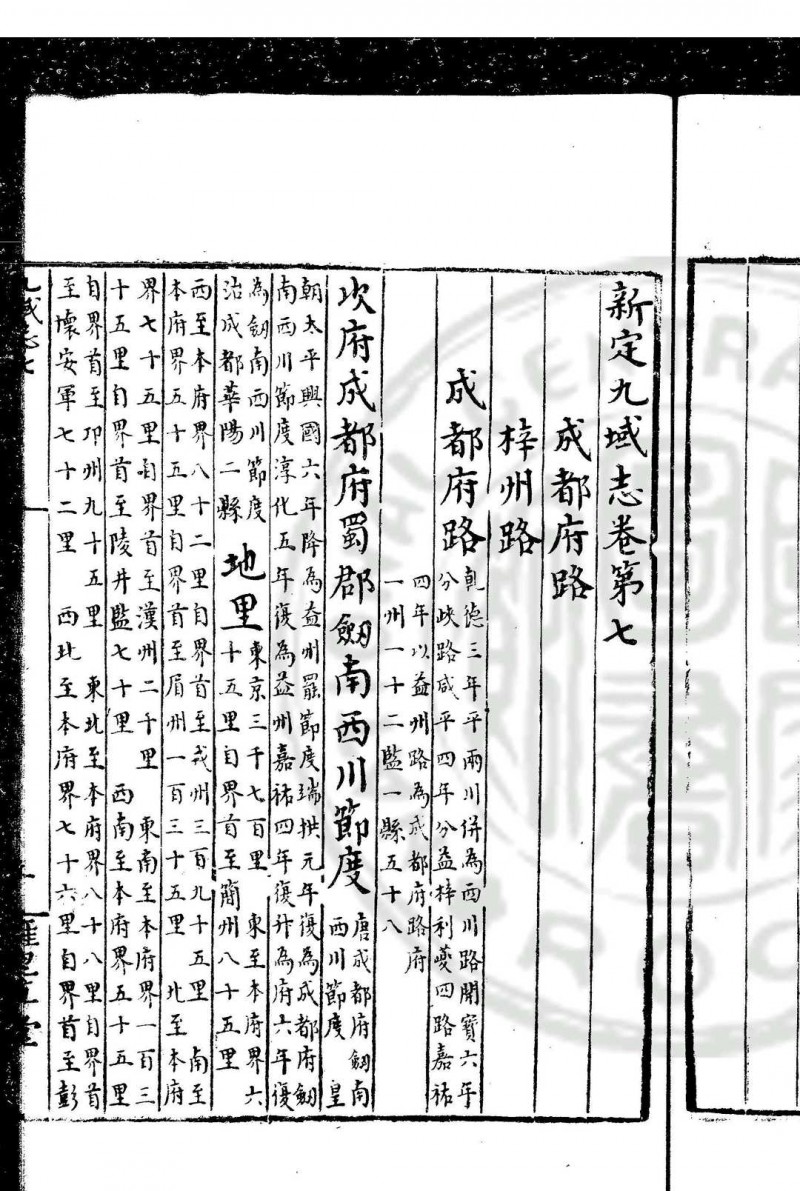 新定九域志卷第七
成都府路
梓州路
成都府路
乾德三年平兩川併為西川路開寶六年
分峽路咸平四年分益梓利夔四路嘉祐
四年以益州路為成都府路府
一州一十二監一縣五十八
次府成都府蜀郡劔南西川節度
唐成都府劔南
西川節度 皇
朝太平興國六年降為益州罷節度瑞拱元年復為成都府劔
南西川節度淳化五年復為益州嘉祐四年復升為府六年復
為劔南西川節度
治成都華陽二縣
地里
東京三千七百里 東至本府界六
十五里自界首至簡州八十五里
西至本府界八十二里自界首至戎州三百九十五里 南至
本府界五十五里自界首至眉州一百三十五里 北至本府
界七十五里自界首至漢州二千里 東南至本府界一百三
十五里自界首至陵井監七十里 西南至本府界五十五里
自界首至卭州九十五里 東北至本府界八十八里自界首
至懷安軍七十二里 西北至本府界七十六里自界首至彭
九域志七